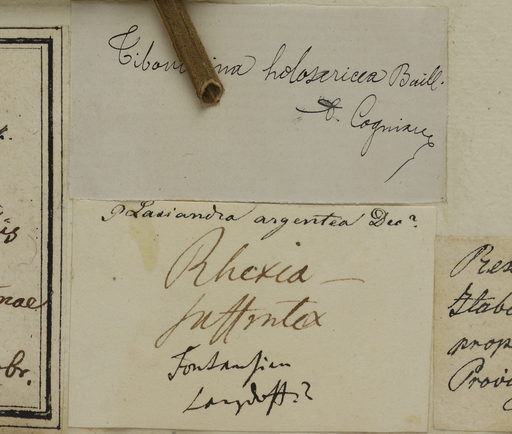 Tibouchina holosericea Baill.
A. Cogniaux
? Lasiandra argentea Dec?
Rhexia —
suffrutex
Langsdorff.?
Res
Itabo
prop
Provi
nae
br.